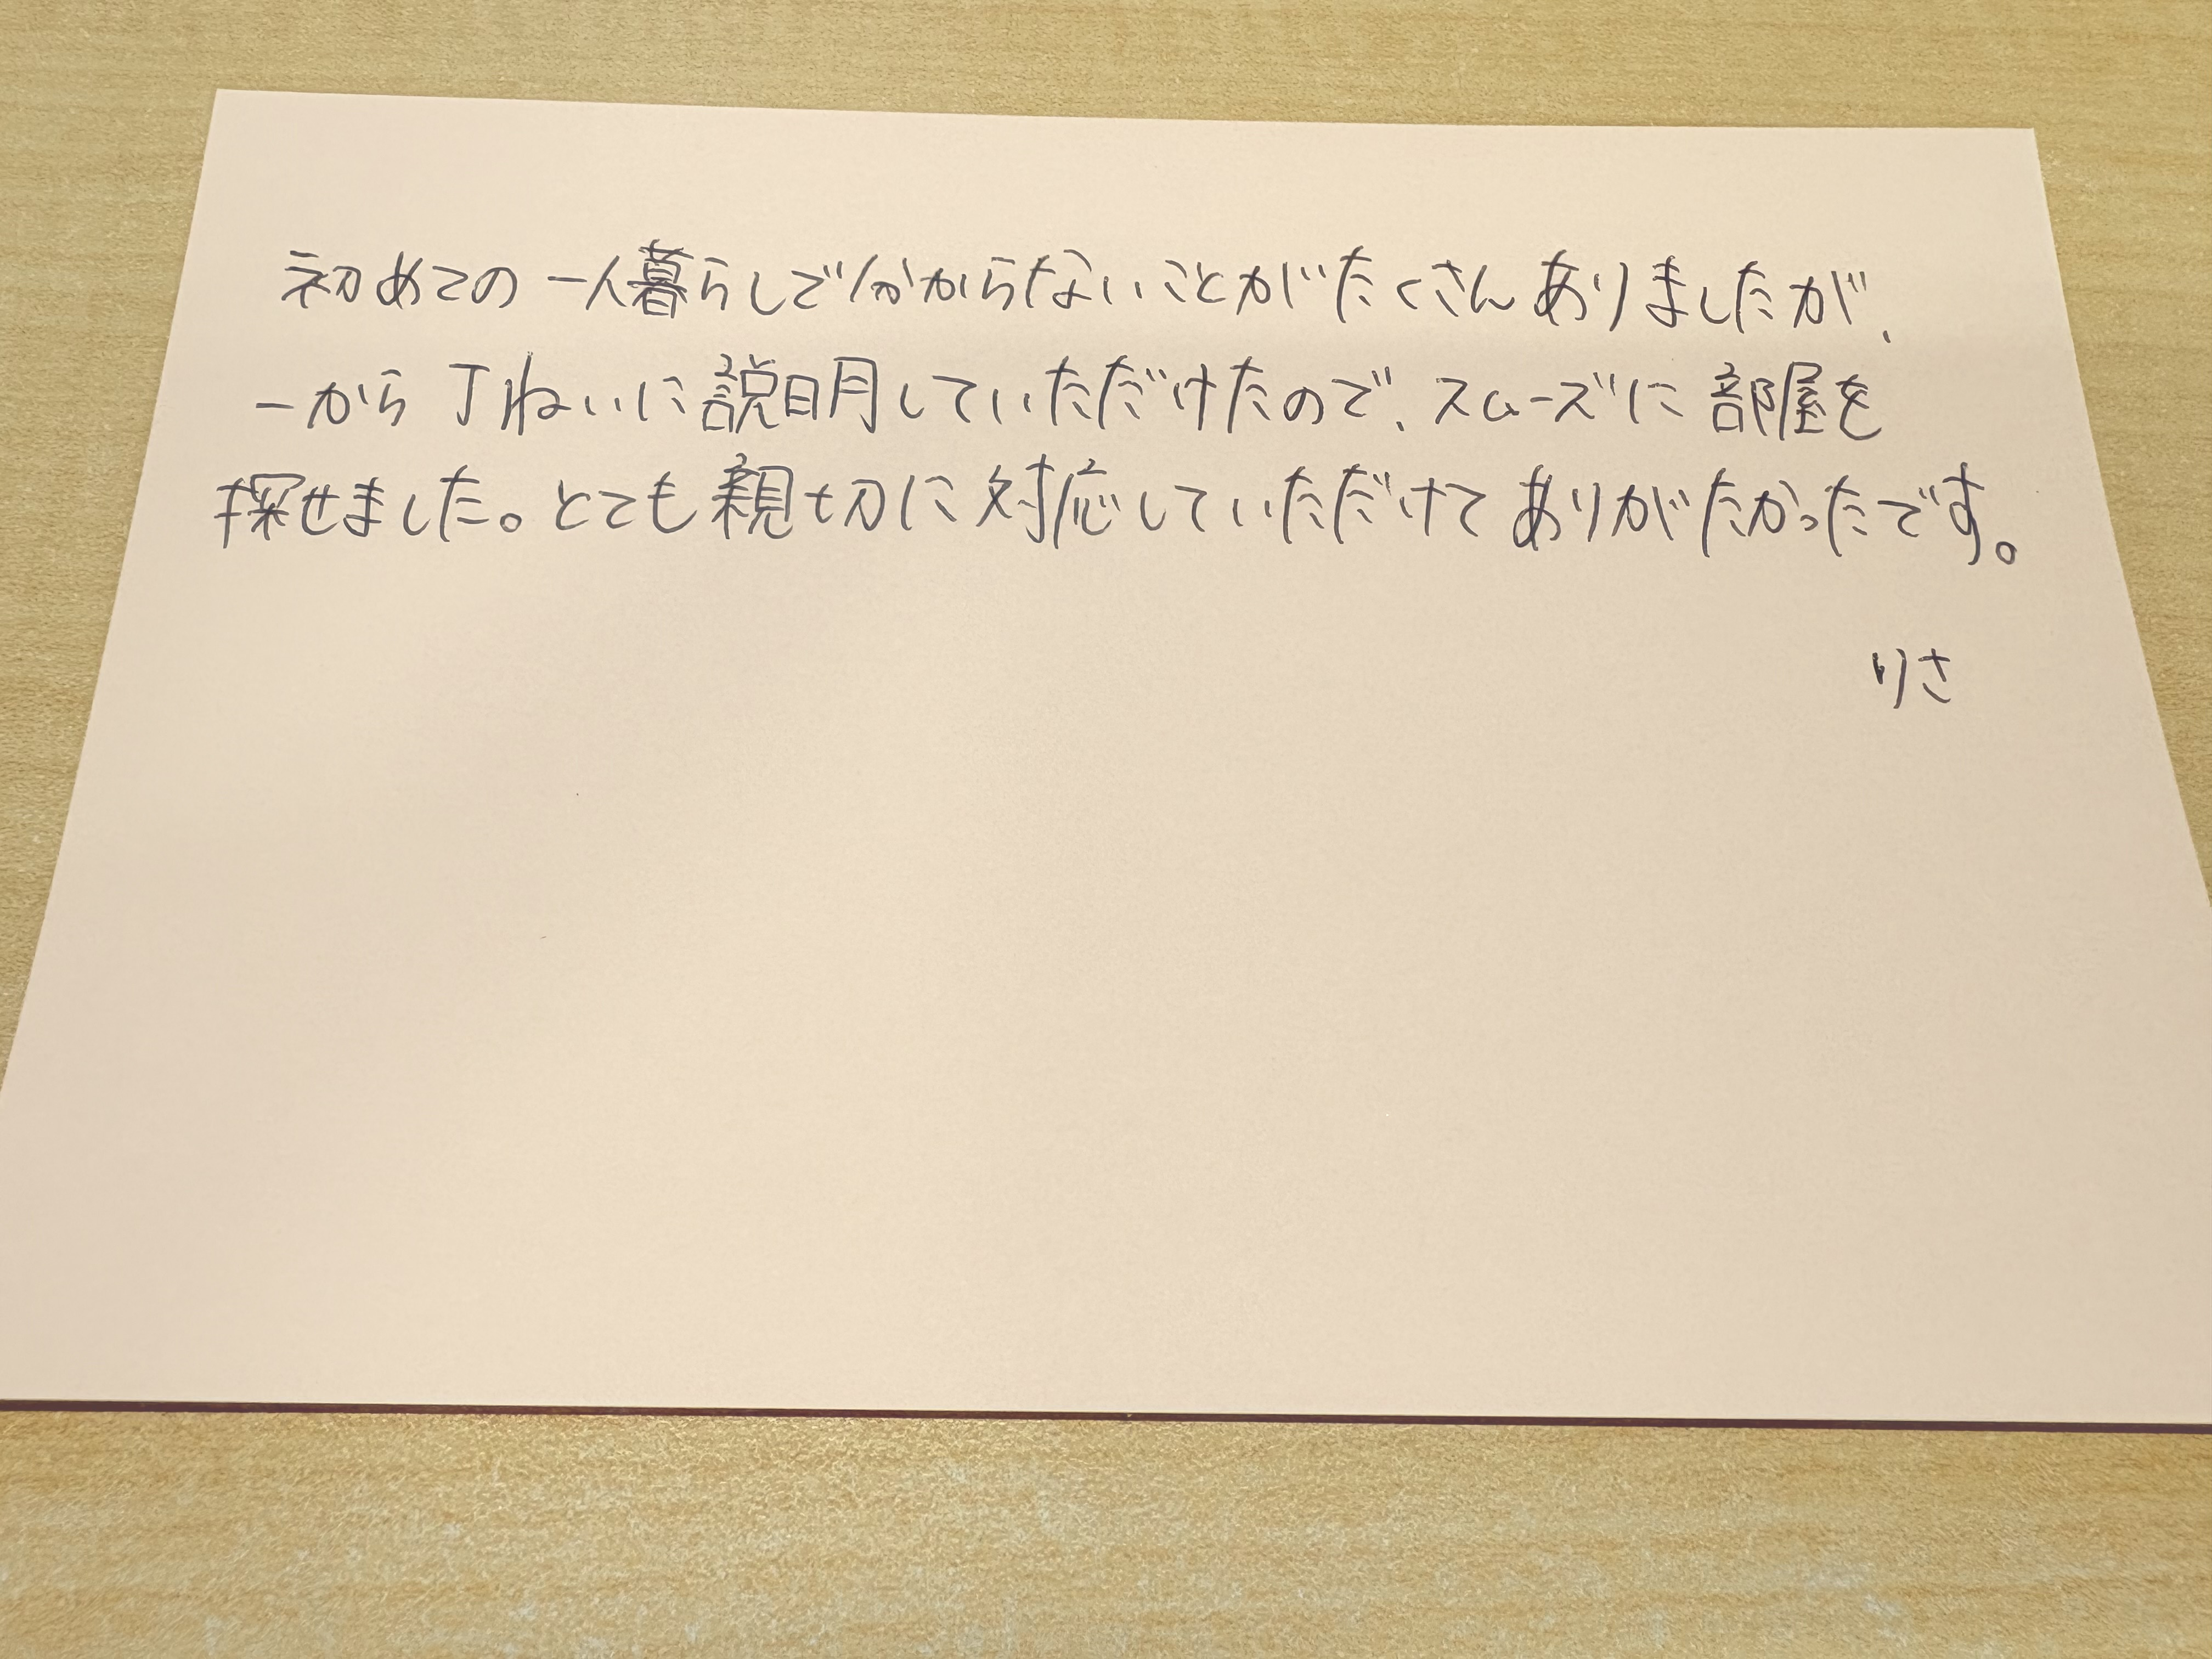 初めての一人暮らしで分からないことがたくさんありましたが、
一から丁ねいに説明していただけたので、スムーズに部屋を
探せました。とても親切に対応していただけてありがたかったです。
りさ